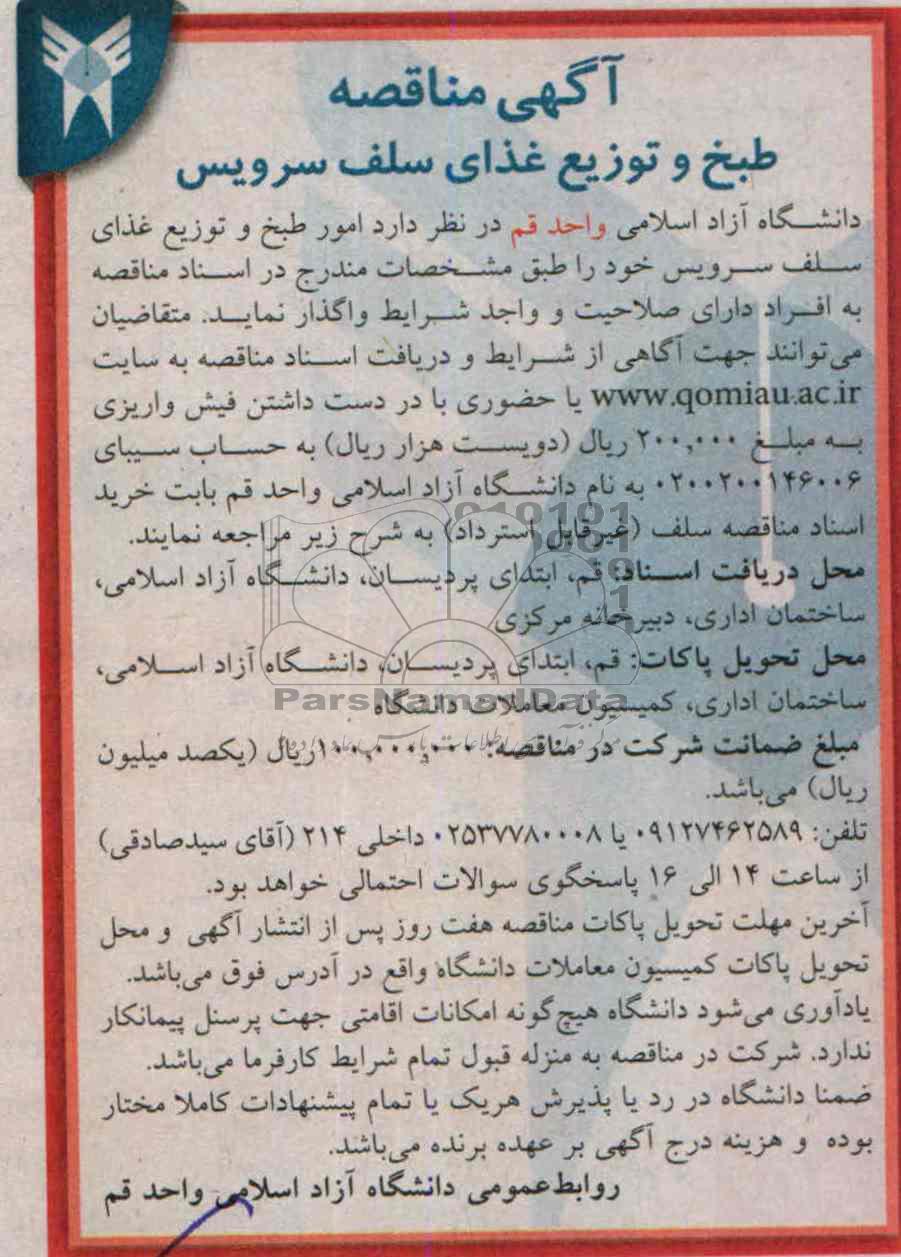 آگهی مناقصه
طبخ و توزیع غذای سلف سرویس
دانشگاه آزاد اسلامی واحد قم در نظر دارد امور طبخ و توزیع غذای
سلف سرویس خود را طبق مشخصات مندرج در اسناد مناقصه
به افراد دارای صلاحیت و واجد شرایط واگذار نماید. متقاضیان
می‌توانند جهت آگاهی از شرایط و دریافت اسناد مناقصه به سایت
www.qomiau.ac.ir یا حضوری با در دست داشتن فیش واریزی
به مبلغ ۲۰۰,۰۰۰ ریال (دویست هزار ریال) به حساب سیبای
۰۲۰۰۲۰۰۱۴۶۰۰۶ به نام دانشگاه آزاد اسلامی واحد قم بابت خرید
اسناد مناقصه سلف (غیرقابل استرداد) به شرح زیر مراجعه نمایند.
محل دریافت اسناد: قم، ابتدای پردیسان، دانشگاه آزاد اسلامی،
ساختمان اداری، دبیرخانه مرکزی
محل تحویل پاکات: قم، ابتدای پردیسان، دانشگاه آزاد اسلامی،
ParsNamadData
ساختمان اداری، کمیسیون معاملات دانشگاه
مبلغ ضمانت شرکت در مناقصه: ۱۰۰,۰۰۰,۰۰۰ریال (یکصد میلیون
ریال) می‌باشد.
تلفن: ۰۹۱۲۷۴۶۲۵۸۹ یا ۰۲۵۳۷۷۸۰۰۰۸ داخلی ۲۱۴ (آقای سیدصادقی)
از ساعت ۱۴ الی ۱۶ پاسخگوی سوالات احتمالی خواهد بود.
آخرین مهلت تحویل پاکات مناقصه هفت روز پس از انتشار آگهی و محل
تحویل پاکات کمیسیون معاملات دانشگاه واقع در آدرس فوق می‌باشد.
یادآوری می‌شود دانشگاه هیچ‌گونه امکانات اقامتی جهت پرسنل پیمانکار
ندارد. شرکت در مناقصه به منزله قبول تمام شرایط کارفرما می‌باشد.
ضمنا دانشگاه در رد یا پذیرش هریک یا تمام پیشنهادات کاملا مختار
بوده و هزینه درج آگهی بر عهده برنده می‌باشد.
روابط‌عمومی دانشگاه آزاد اسلامی واحد قم